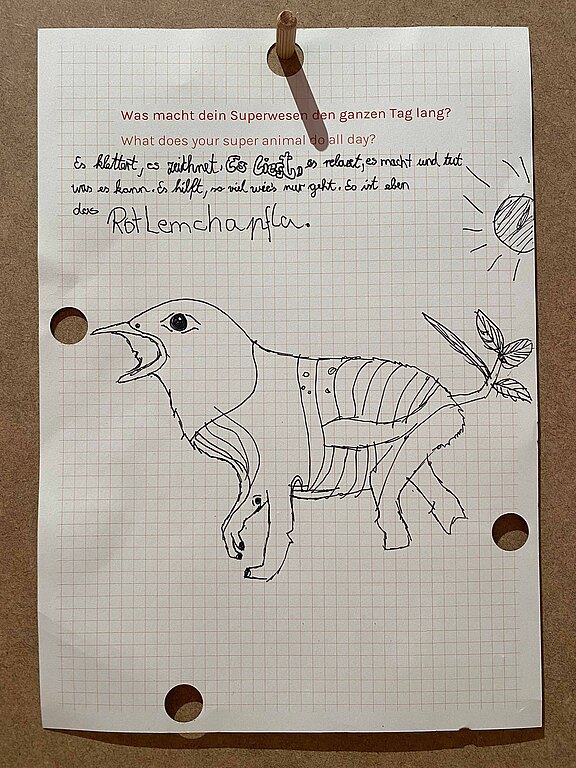 Was macht dein Superwesen den ganzen Tag lang?
What does your super animal do all day?
Es klettert, es zeichnet. Es liest, es relaxt, es macht und tut
was es kann. Es hilft, so viel wie's nur geht. Es ist eben
das RotLemchapfla.